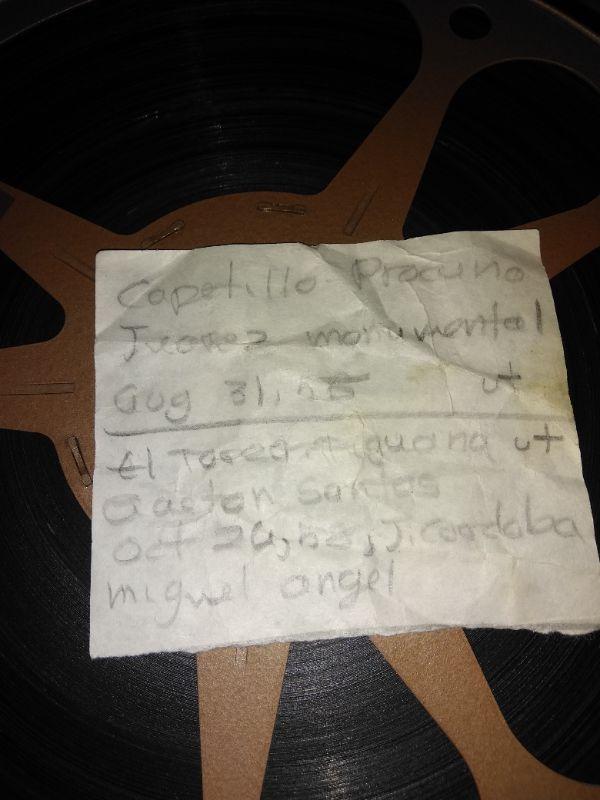 Capetillo - Procuno
Juarez monumental
aug 31, 
ut
El Toreo Tiguana ut
Gaston Santos
Oct J. Cordoba
miguel angel